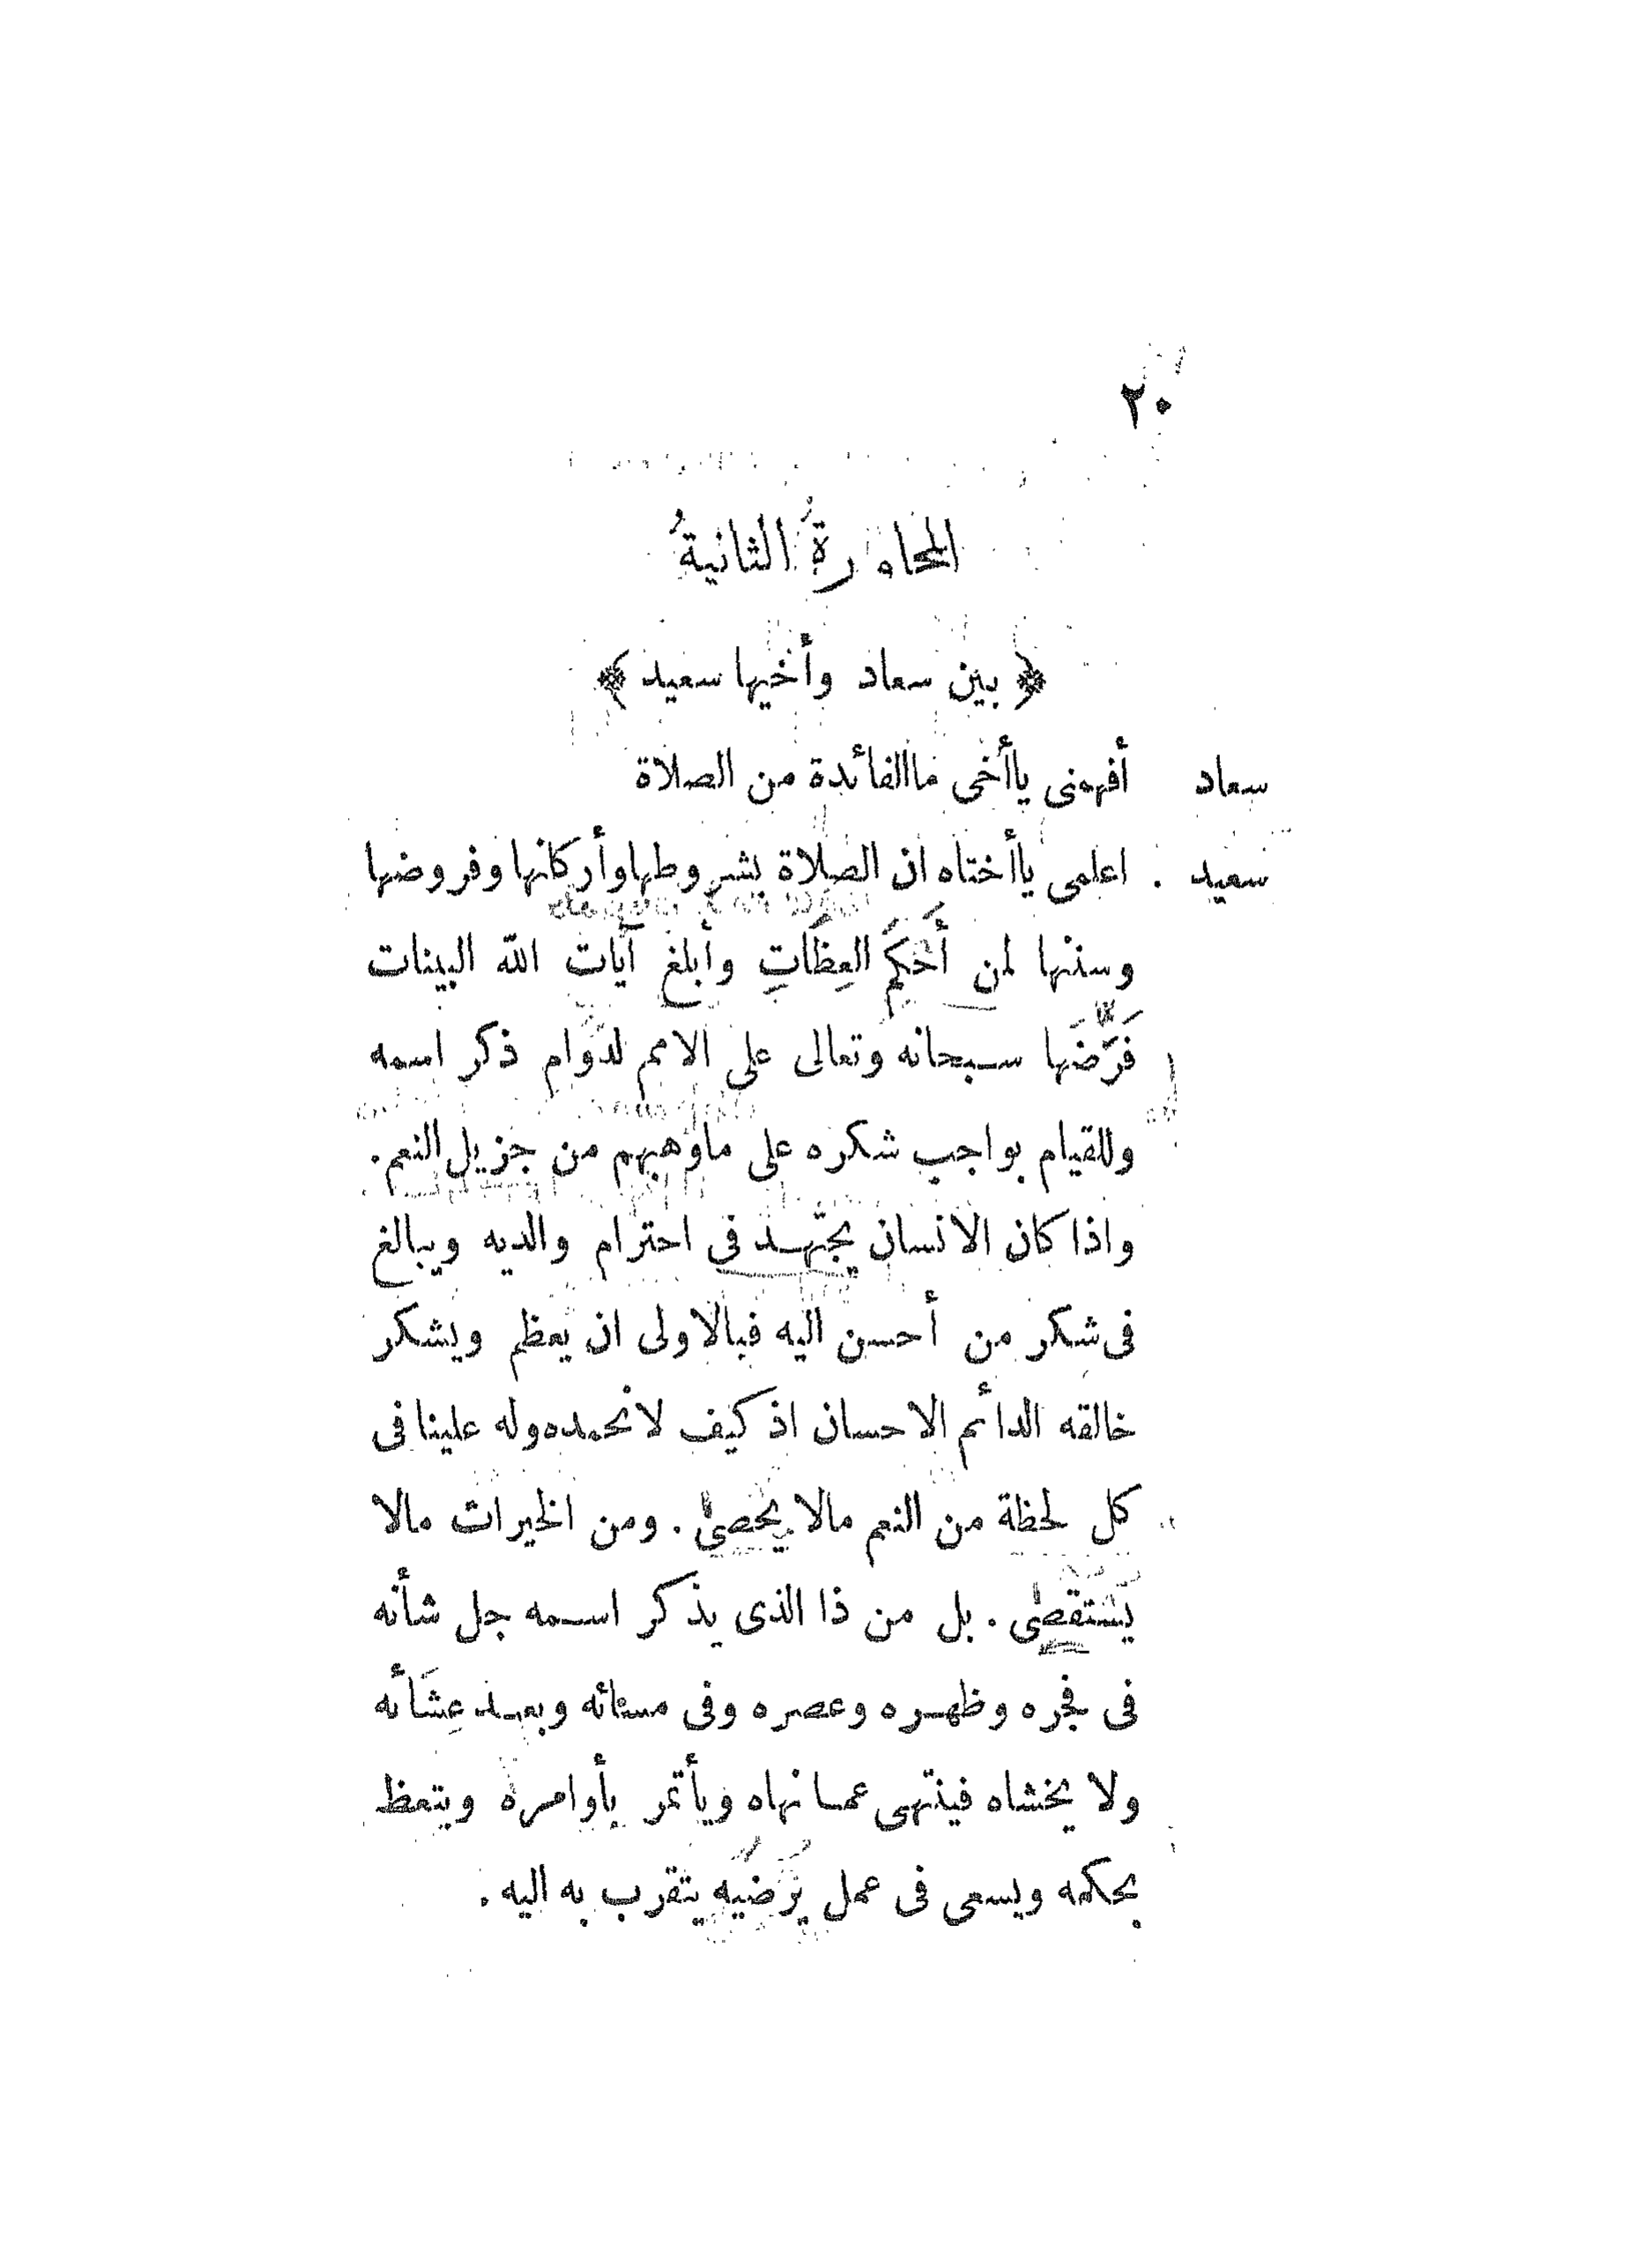 ٢٠
المحاورةُ الثانيةُ
﴿ بين سعاد وأخيها سعيد ﴾
سعاد أفهمنى ياأخى ماالفائدة من الصلاة
سعيد . اعلمى ياأختاه ان الصلاة بشروطها وأركانها وفروضها
وسننها لمن أَحْكَمِ العِظَاتِ وأبلغ آيات الله البينات
فَرَضَها سبحانه وتعالى على الامم لدوام ذكر اسمه
وللقيام بواجب شكره على ماوهبهم من جزيل النعم .
واذا كان الانسان يجتهد فى احترام والديه ويبالغ
فى شكر من أحسن اليه فبالاولى ان يعظم ويشكر
خالقه الدائم الاحسان اذ كيف لانحمده وله علينا فى
كل لحظة من النعم مالا يحصى . ومن الخيرات مالا
يستقصى . بل من ذا الذى يذكر اسمه جل شأنه
فى فجره وظهره وعصره وفى مسائه وبعد عِشَائه
ولا يخشاه فينتهى عما نهاه ويأتمر بأوامره ويتعظ
بحكمه ويسعى فى عمل يرضيه يتقرب به اليه .